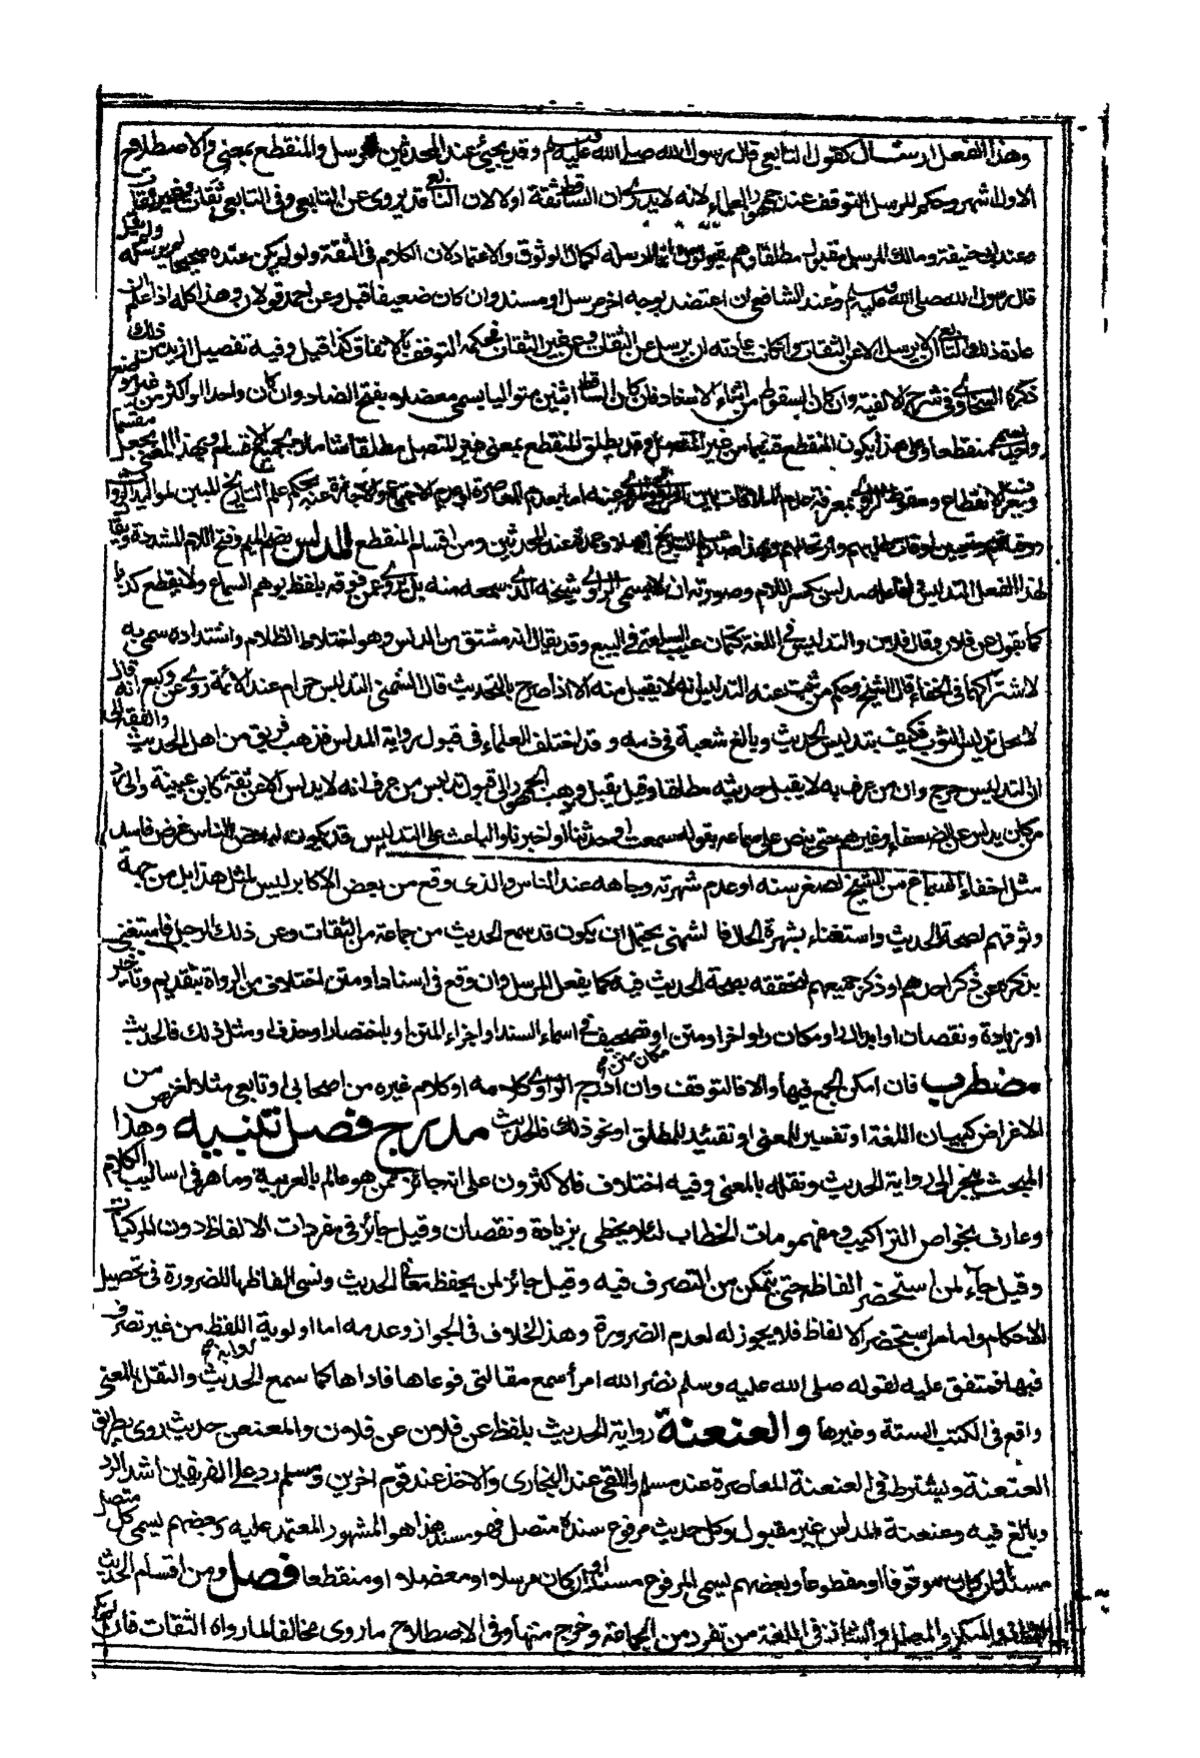 وهذا الفعل ارسال كقول التابعي قال رسول الله صلى الله عليه وسلم وقد يجيئ عند المحدثين المرسل والمنقطع بمعنى والاصطلاح
الاول اشهر وحكم المرسل التوقف عند جمهور العلماء لانه لا يدرى ان الساقط ثقة او لا لان التابعي قد يروى عن التابعي وفى التابعين ثقات وغير ثقات
وعند ابى حنيفة ومالك المرسل مقبول مطلقا وهم يقولون انما ارسله لكمال الوثوق والاعتماد لان الكلام فى الثقة ولو لم يكن عنده صحيحا لم يرسله ولم يقل
قال رسول الله صلى الله عليه وسلم وعند الشافعى ان اعتضد بوجه اخر مرسل او مسند وان كان ضعيفا قبل وعن احمد قولان وهذا كله اذا علم ان
عادة ذلك التابعي ان لا يرسل الا عن الثقات وان كانت عادته ان يرسل عن الثقات وعن غير الثقات فحكمه التوقف بالاتفاق كذا قيل وفيه تفصيل ازيد من ذلك
ذكره السخاوى فى شرح الالفية وان كان السقوط من اثناء الاسناد فان كان الساقط اثنين متواليا يسمى معضلا بفتح الضاد وان كان واحدا او اكثر من غير موضع
واحد يسمى منقطعا وعلى هذا يكون المنقطع قسما من غير المتصل وقد يطلق المنقطع بمعنى غير المتصل مطلقا شاملا لجميع الاقسام وبهذا المعنى يجعل مقسما
ويعرف الانقطاع وسقوط الراوى بمعرفة عدم الملاقات بين الراوى والمروى عنه اما بعدم المعاصرة او عدم الاجتماع والاجازة عنه بحكم علم التاريخ المبين لمواليد الرواة
ووفياتهم وتعيين اوقات طلبهم وارتحالهم وبهذا صار علم التاريخ اصلا وعمدة عند المحدثين ومن اقسام المنقطع المدلس بضم الميم وفتح اللام المشددة ويقال
لهذا الفعل التدليس ولفاعله مدلس بكسر اللام وصورته ان لا يسمى الراوى شيخه الذى سمعه منه بل يروى عمن فوقه بلفظ يوهم السماع ولا يقطع كذبا
كما يقول عن فلان وقال فلان والتدليس فى اللغة كتمان عيب السلعة فى البيع وقد يقال انه مشتق من الدلس وهو اختلاط الظلام واشتداده سمى به
لاشتراكهما فى الخفاء قال الشيخ وحكم من ثبت عنه التدليس انه لا يقبل منه الا اذا صرح بالتحديث قال الشمنى التدليس حرام عند الائمة روى عن وكيع انه قال
لا يحل تدليس الثوب فكيف بتدليس الحديث وبالغ شعبة فى ذمه وقد اختلف العلماء فى قبول رواية المدلس فذهب فريق من اهل الحديث والفقه الى
ان التدليس جرح وان من عرف به لا يقبل حديثه مطلقا وقيل يقبل وذهب الجمهور الى قبول تدليس من عرف انه لا يدلس الا عن ثقة كابن عيينة والى رد
من كان يدلس عن الضعفاء وغيرهم حتى ينص على سماعه بقوله سمعت او حدثنا او اخبرنا والباعث على التدليس قد يكون لبعض الناس غرض فاسد
مثل اخفاء السماع من الشيخ لصغر سنه او عدم شهرته وجاهه عند الناس والذى وقع من بعض الاكابر ليس لمثل هذا بل من جهة
وثوقهم لصحة الحديث واستغناء بشهرة الحال قال الشمنى يحتمل ان يكون قد سمع الحديث من جماعة من الثقات وعن ذلك الرجل فاستغنى
بذكره عن ذكر احدهم او ذكر جميعهم لتحققه بصحة الحديث فيه كما يفعل المرسل وان وقع فى اسناد او متن اختلاف من الرواة بتقديم وتاخير
او زيادة ونقصان او ابدال راو مكان راو اخر او متن مكان متن او تصحيف فى اسماء السند او اجزاء المتن او باختصار او حذف او مثل ذلك فالحديث
مضطرب فان امكن الجمع فبها والا فالتوقف وان ادرج الراوى كلامه او كلام غيره من صحابى او تابعى مثلا لغرض من
الاغراض كبيان اللغة او تفسير للمعنى او تقييد للمطلق او نحو ذلك فالحديث مدرج فصل تنبيه وهذا
المبحث ينجر الى رواية الحديث ونقله بالمعنى وفيه اختلاف فالاكثرون على انه جائز ممن هو عالم بالعربية وماهر فى اساليب الكلام
وعارف بخواص التراكيب ومفهومات الخطاب لئلا يخطى بزيادة ونقصان وقيل جائز فى مفردات الالفاظ دون المركبات
وقيل جاء لمن استحضر الفاظه حتى يتمكن من التصرف فيه وقيل جائز لمن يحفظ معانى الحديث ونسى الفاظها للضرورة فى تحصيل
الاحكام واما من استحضر الالفاظ فلا يجوز له لعدم الضرورة وهذا الخلاف فى الجواز وعدمه اما اولوية رواية اللفظ من غير تصرف
فيها فمتفق عليه لقوله صلى الله عليه وسلم نضر الله امرأ سمع مقالتى فوعاها فاداها كما سمع الحديث والنقل بالمعنى
واقع فى الكتب الستة وغيرها والعنعنة رواية الحديث بلفظ عن فلان عن فلان والمعنعن حديث روى بطريق
العنعنة ويشترط فى العنعنة المعاصرة عند مسلم واللقى عند البخارى والاخذ عند قوم اخرين ومسلم رد على الفريقين اشد الرد
وبالغ فيه وعنعنة المدلس غير مقبول وكل حديث مرفوع سنده متصل فهو مسند هذا هو المشهور المعتمد عليه وبعضهم يسمى كل متصل
مسندا وان كان موقوفا او مقطوعا وبعضهم يسمى المرفوع مسندا وان كان مرسلا او معضلا او منقطعا فصل ومن اقسام الحديث
الشاذ والمنكر والمعلل والشاذ فى اللغة من تفرد من الجماعة وخرج منها وفى الاصطلاح ما روى مخالفا لما رواه الثقات فان لم